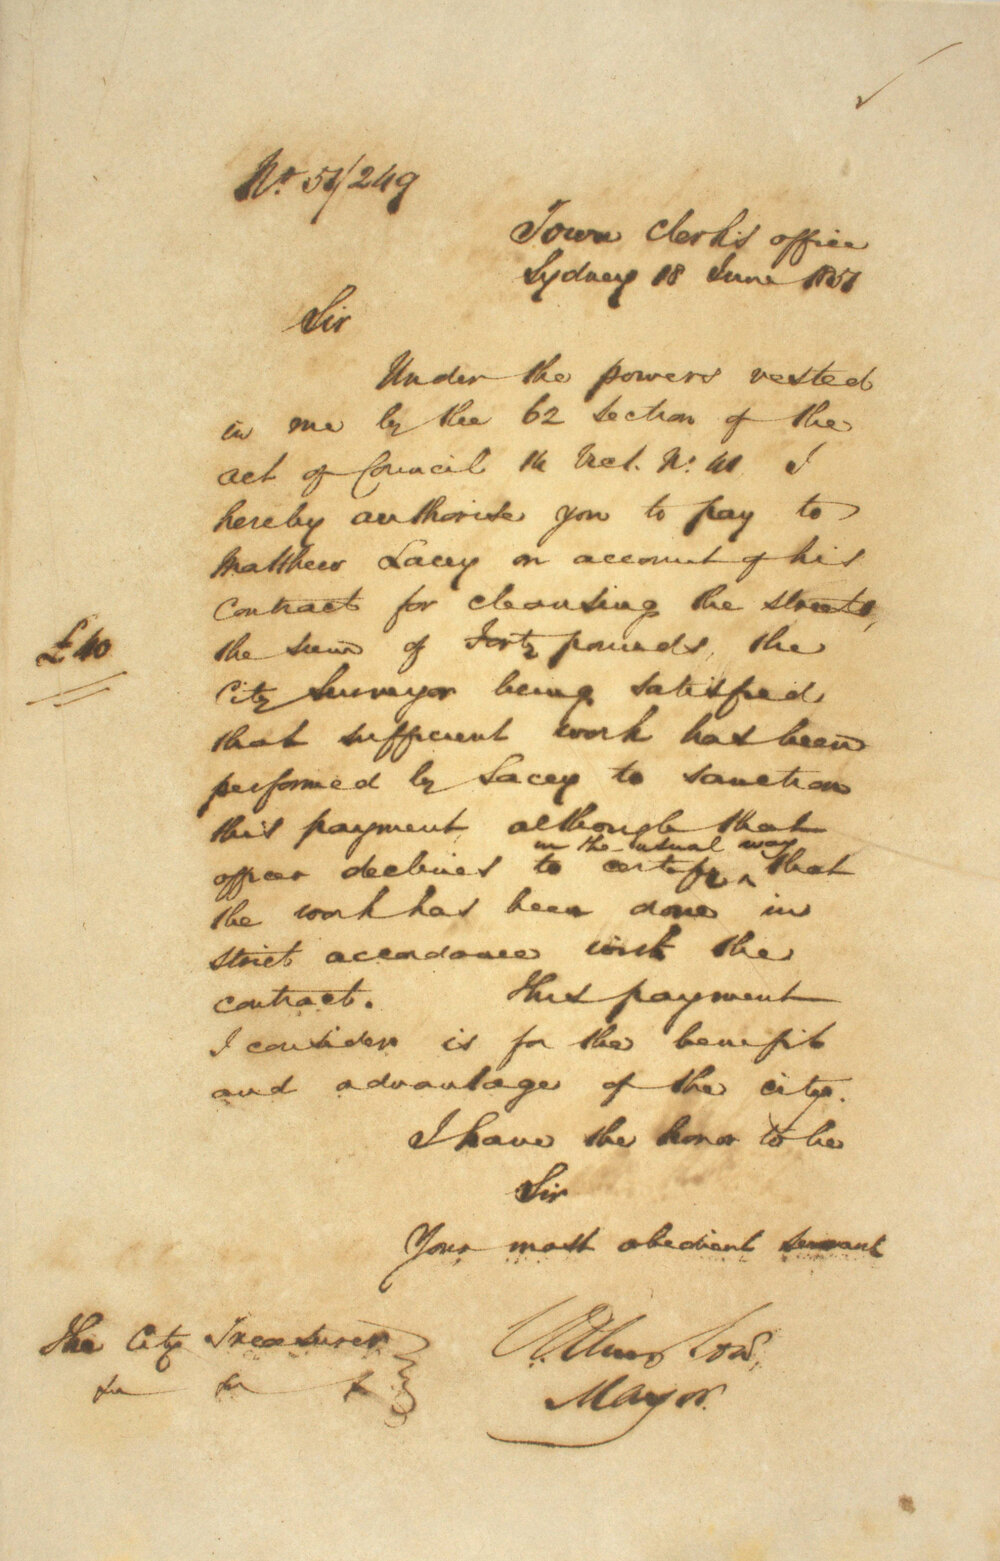 No. 51/249
Town Clerk's office
Sydney 18 June 1851
Sir
Under the powers vested
in me by the 62 section of the
act of Council 14 Vict. No. 41 I
hereby authorise you to pay to
Matthew Lacey on account of his
Contract for cleansing the streets,
£40
the sum of Forty pounds, the
City Surveyor being satisfied
that sufficient work has been
performed by Lacey to sanction
this payment, although that
in the usual way
officer declines to certify ^ that
the work has been done in
strict accordance with the
contract. This payment
I consider is for the benefit
and advantage of the city.
I have the honor to be
Sir
Your most obedient servant
The City Treasurer
Mayor.